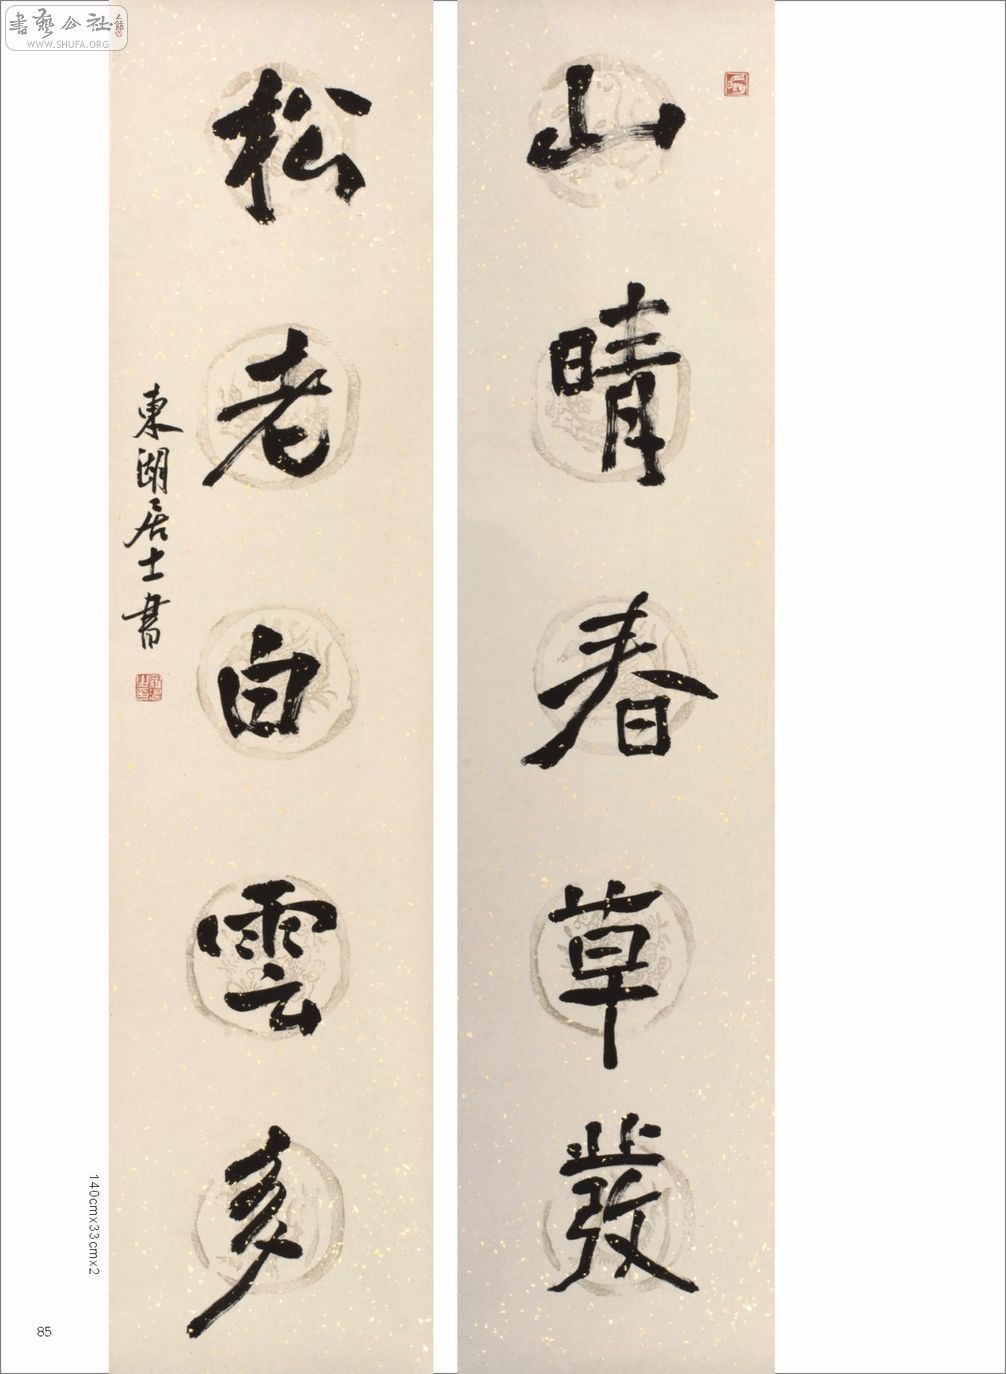 山晴春草發
松老白雲多
東湖居士書
書藝公社
WWW.SHUFA.ORG
140cmx33cmx2
85